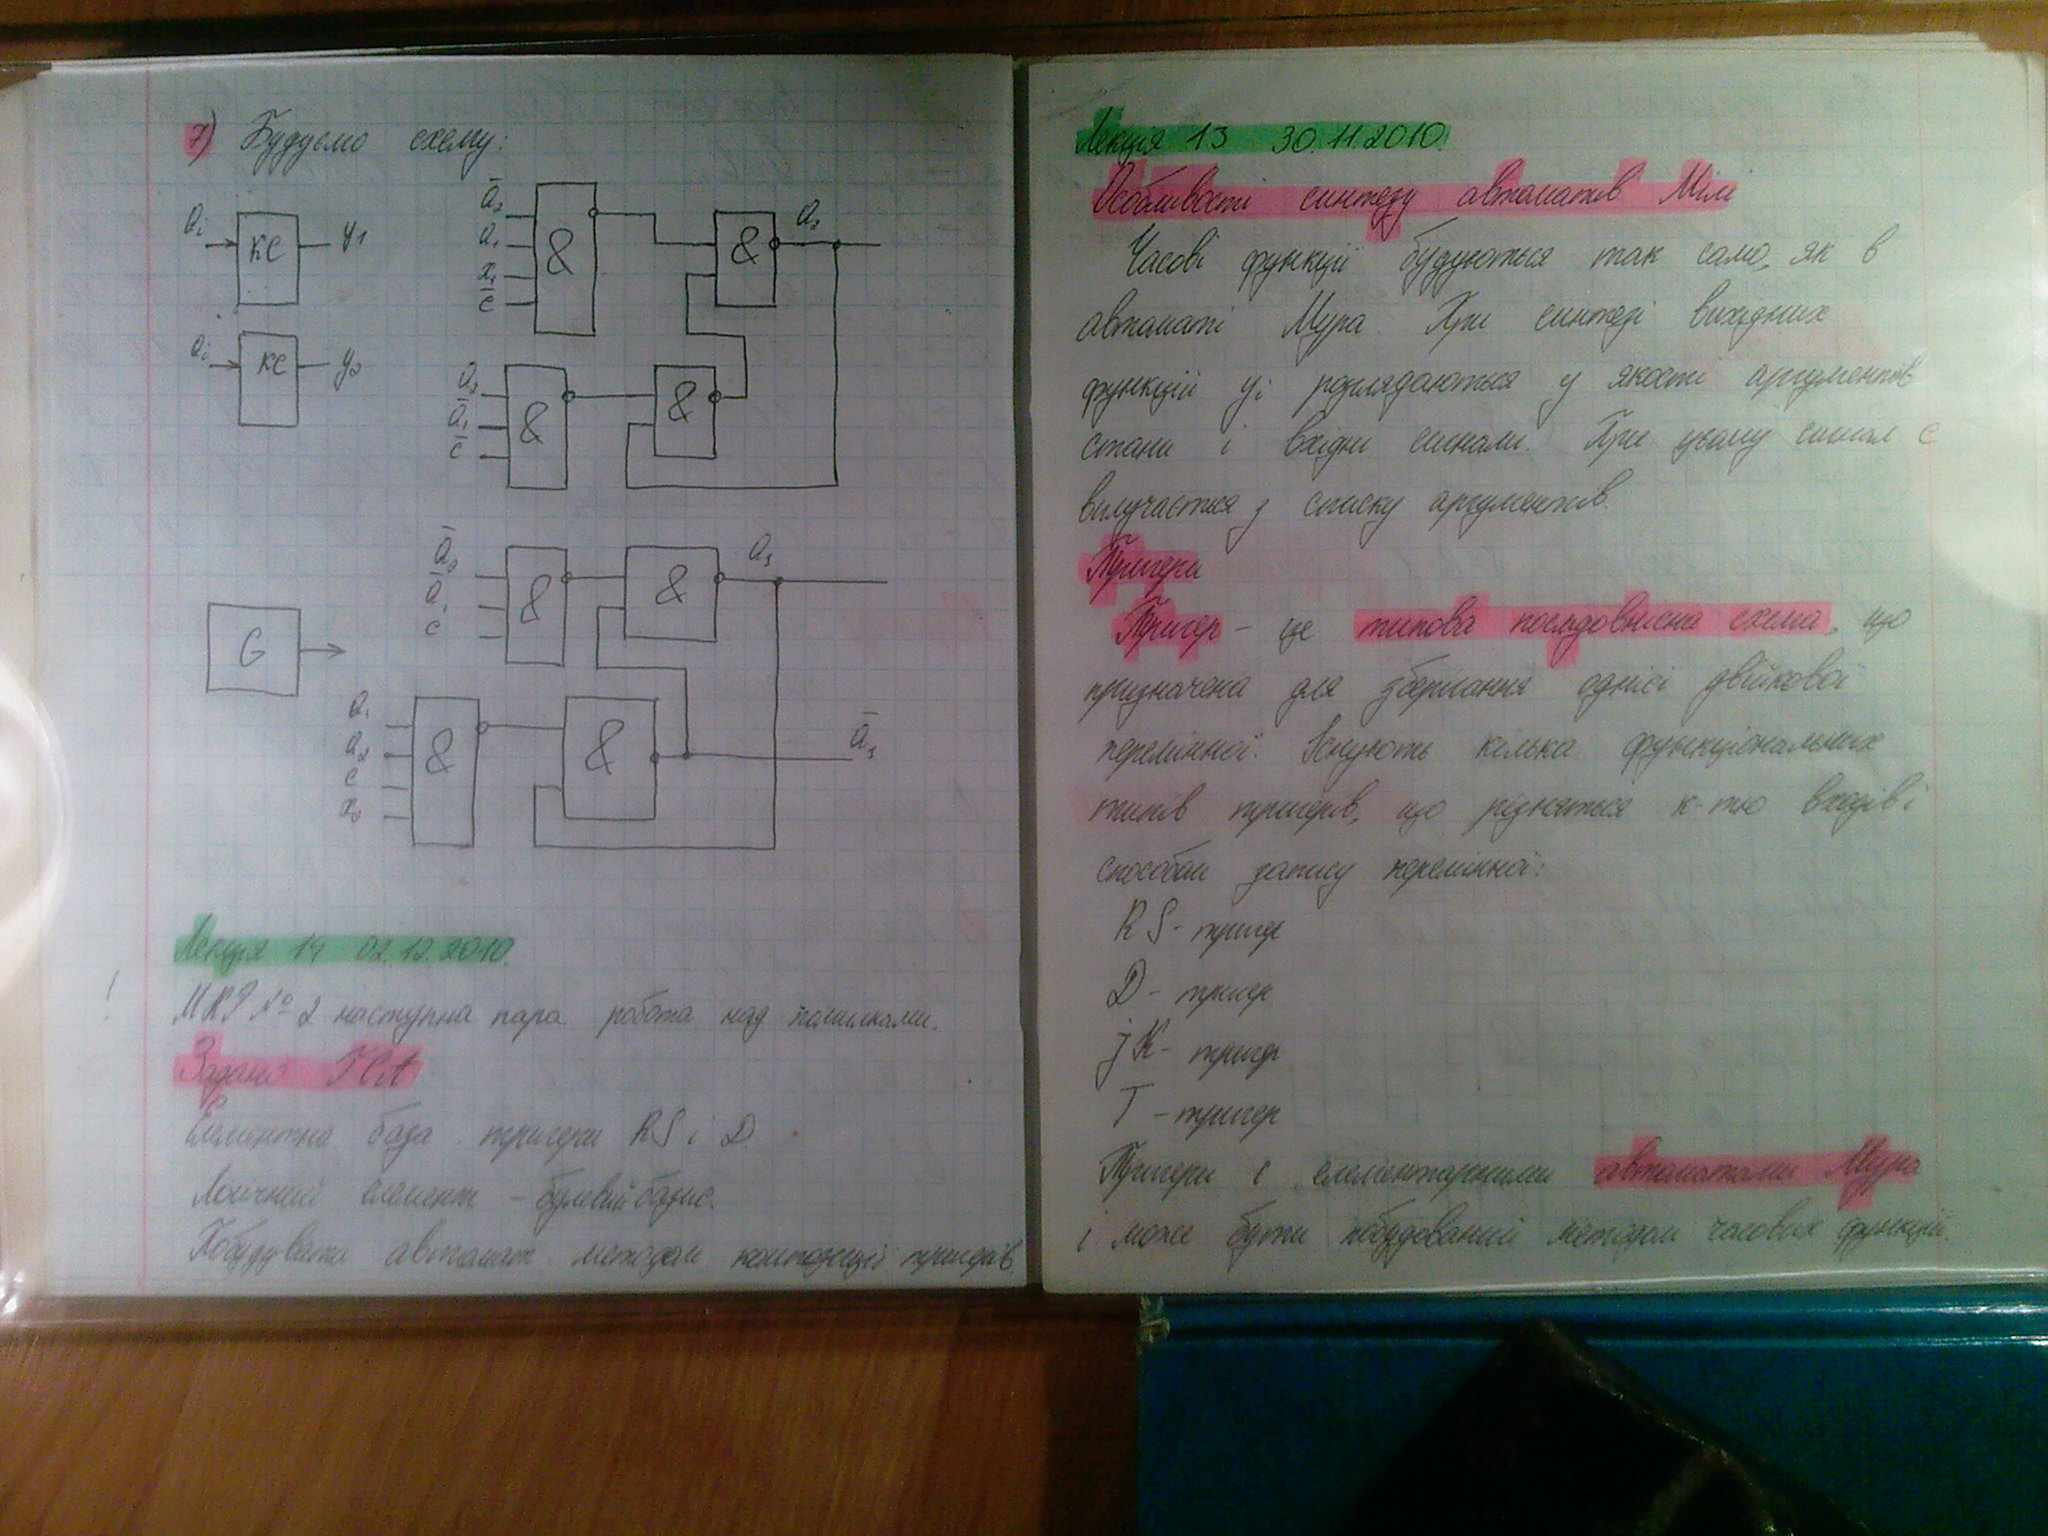 7) Будуємо схему:
ai КС y1
ai КС y2
ā2
a1
x1
c̄
&
& a2
a2
ā1
c̄
&
&
ā2
ā1
c
&
& a3
G
a1
a2
c
x2
&
&
ā3
Лекція 14 02.12.2010.
! МКР №2 наступна пара робота над помилками.
Задано
Елементна база тригери RS і D.
Логічний елемент – булевий базис.
Побудувати автомат методом композиції тригерів
Лекція 13 30.11.2010.
Особливості синтезу автоматів Мілі
Часові функції будуються так само, як в
автоматі Мура. При синтезі вихідних
функцій yi розглядаються у якості аргументів
стани і вхідні сигнали. При цьому сигнал c
вилучається з списку аргументів.
Тригери
Тригер – це типова послідовнісна схема, що
призначена для зберігання однієї двійкової
перемінної. Існують кілька функціональних
типів тригерів, що різняться к-тю входів і
способом запису перемінної:
RS- тригер
D - тригер
jK- тригер
T - тригер
Тригери є елементарними автоматами Мура
і може бути побудований методом часових функцій.